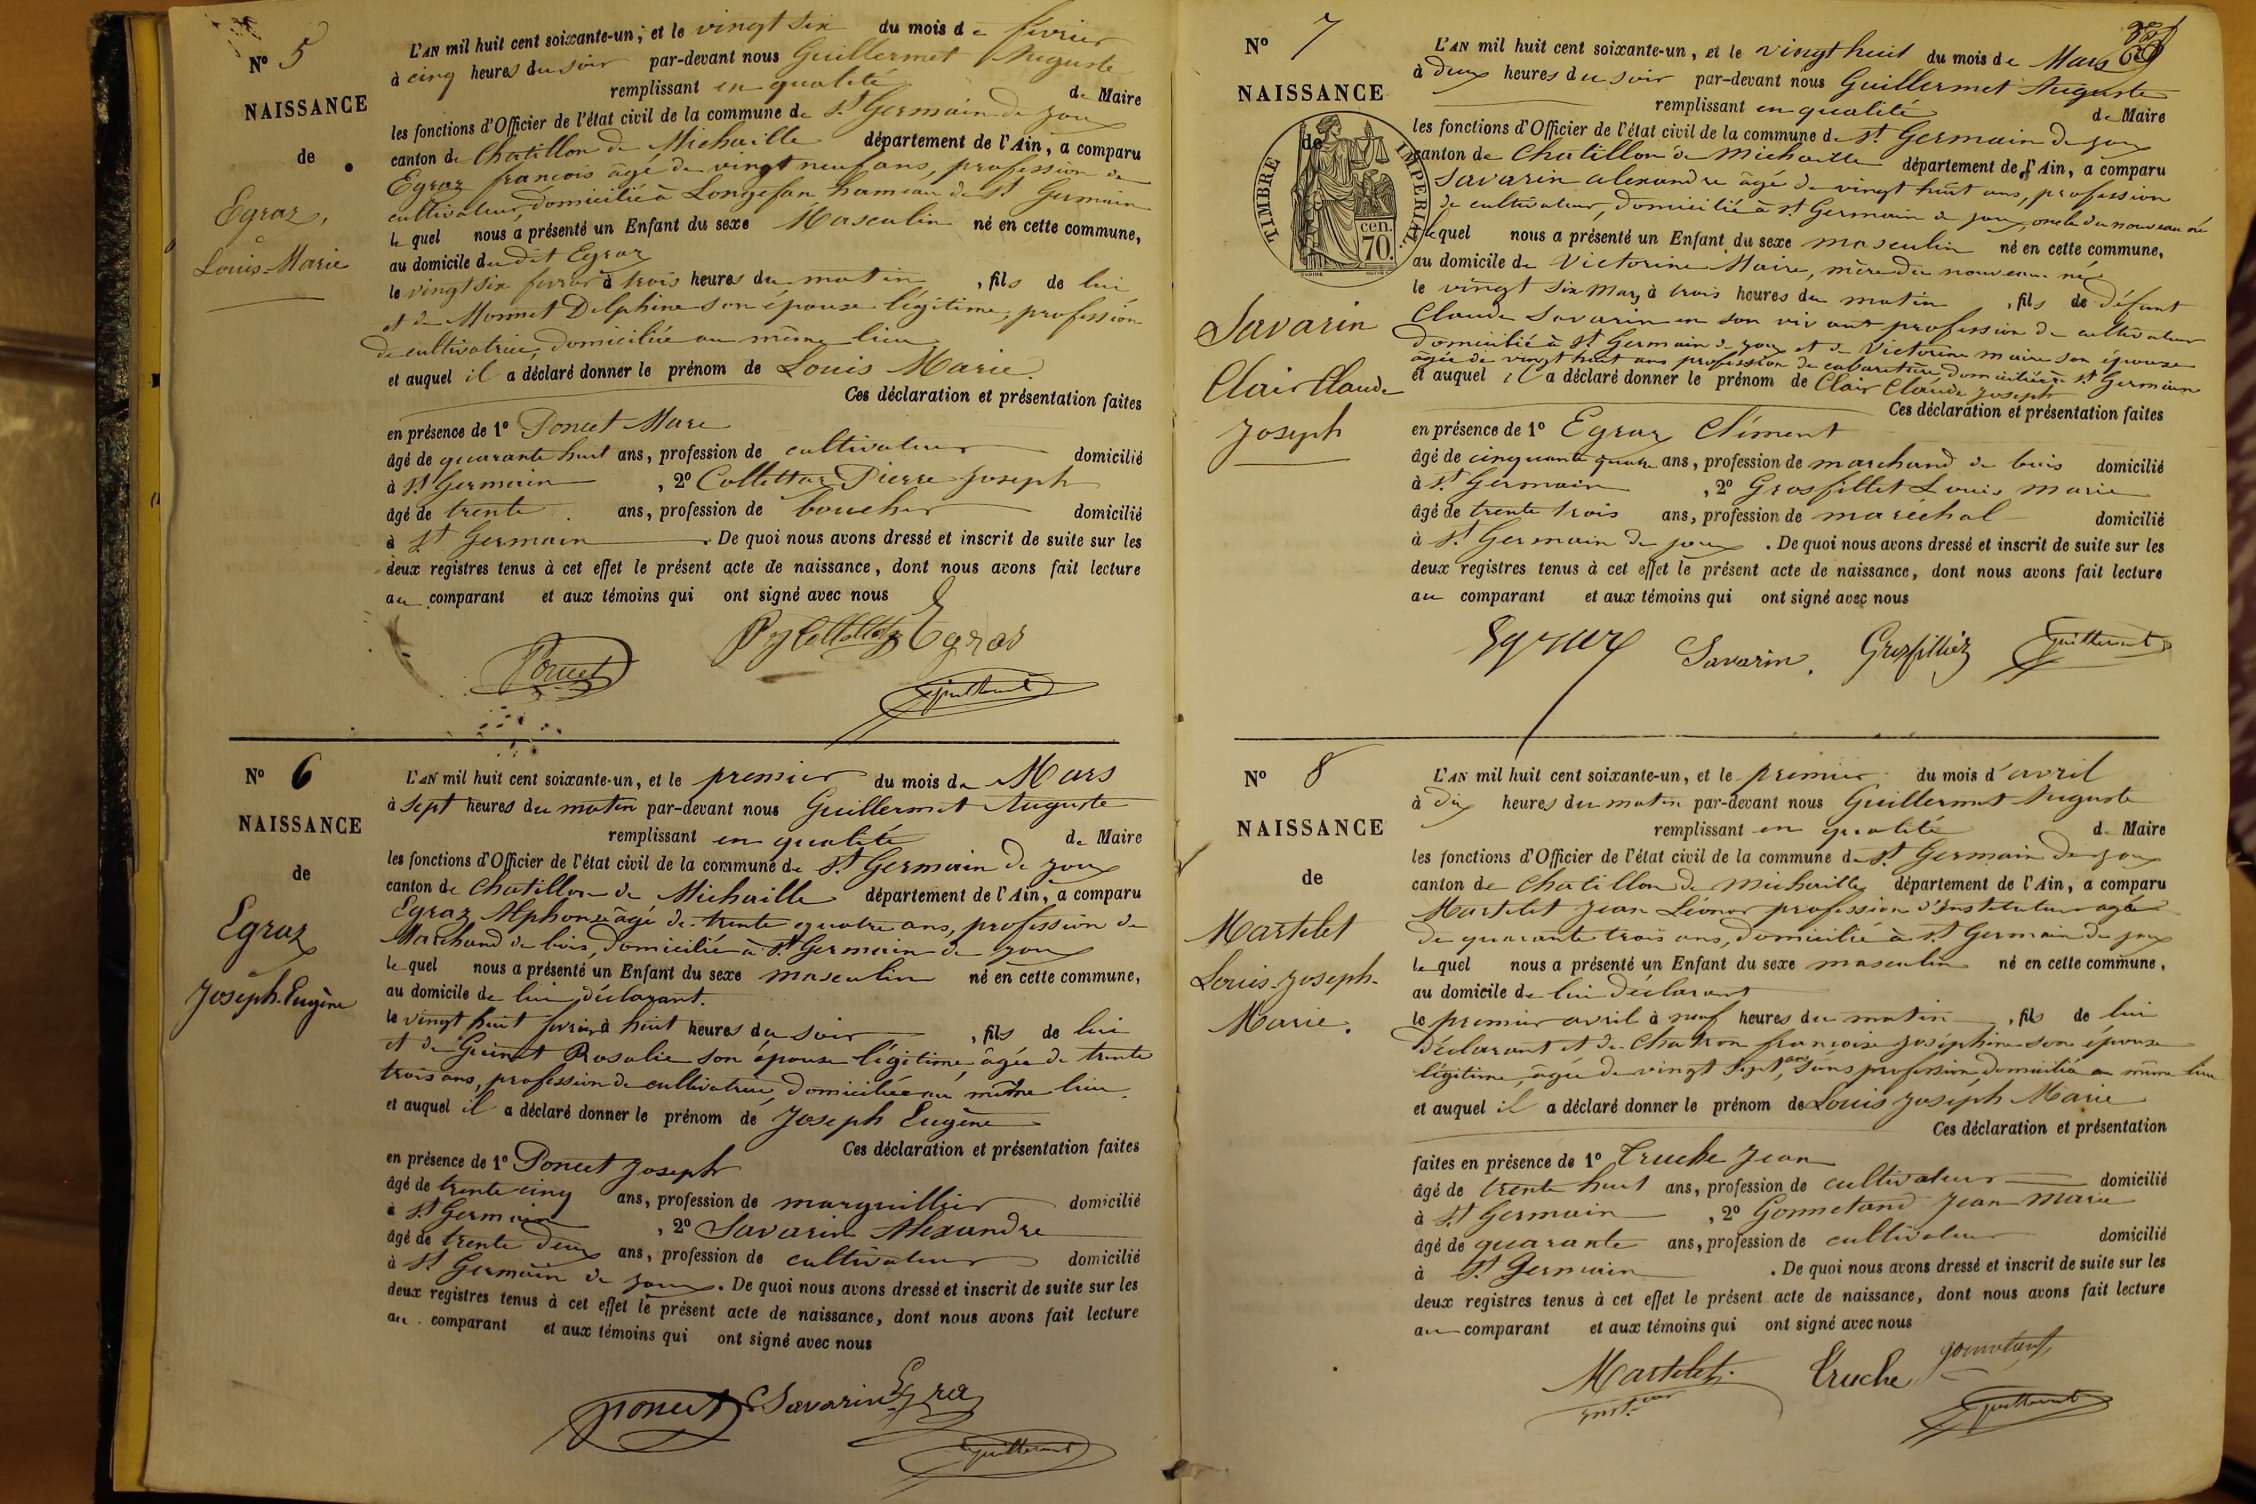 N° 5
NAISSANCE
de
Egraz,
Louis-Marie
L'AN mil huit cent soixante-un, et le vingt six du mois de février
à cinq heures du soir par-devant nous Guillermet Auguste
remplissant en qualité de Maire
les fonctions d'Officier de l'état civil de la commune de St Germain de joux
canton de Chatillon de Michaille département de l'Ain, a comparu
Egraz françois âgé de vingt neuf ans, profession de
cultivateur, domicilié à Longefan hameau de St Germain
le quel nous a présenté un Enfant du sexe Masculin né en cette commune,
au domicile du dit Egraz
le vingt six fevrier à trois heures du matin, fils de lui
et de Monnet Delphine son épouse légitime, profession
de cultivatrice, domiciliée au même lieu
et auquel il a déclaré donner le prénom de Louis Marie.
Ces déclaration et présentation faites
en présence de 1° Poncet Marc
âgé de quarante huit ans, profession de cultivateur domicilié
à St Germain, 2° Collettaz Pierre Joseph
âgé de trente ans, profession de boucher domicilié
à St Germain. De quoi nous avons dressé et inscrit de suite sur les
deux registres tenus à cet effet le présent acte de naissance, dont nous avons fait lecture
au comparant et aux témoins qui ont signé avec nous
Poncet Egraz
Guillermet
N° 6
NAISSANCE
de
Egraz
Joseph-Eugène
L'AN mil huit cent soixante-un, et le premier du mois de Mars
à sept heures du matin par-devant nous Guillermet Auguste
remplissant en qualité de Maire
les fonctions d'Officier de l'état civil de la commune de St Germain de joux
canton de Chatillon de Michaille département de l'Ain, a comparu
Egraz Alphonse âgé de trente quatre ans, profession de
Marchand de bois, domicilié à St Germain de joux
le quel nous a présenté un Enfant du sexe masculin né en cette commune,
au domicile de lui déclarant.
le vingt huit fevrier à huit heures du soir, fils de lui
et de Guinet Rosalie son épouse légitime, âgée de trente
trois ans, profession de cultivatrice, domiciliée au même lieu.
et auquel il a déclaré donner le prénom de Joseph Eugène
Ces déclaration et présentation faites
en présence de 1° Poncet Joseph
âgé de trente cinq ans, profession de marguillier domicilié
à St Germain, 2° Savarin Alexandre
âgé de trente deux ans, profession de cultivateur domicilié
à St Germain de joux. De quoi nous avons dressé et inscrit de suite sur les
deux registres tenus à cet effet le présent acte de naissance, dont nous avons fait lecture
au comparant et aux témoins qui ont signé avec nous
Poncet Savarin Egraz
Guillermet
N° 7
NAISSANCE
de
TIMBRE IMPERIAL
70 cen.
Savarin
Clair Claude
Joseph
L'AN mil huit cent soixante-un, et le vingt huit du mois de Mars
à deux heures du soir par-devant nous Guillermet Auguste
remplissant en qualité de Maire
les fonctions d'Officier de l'état civil de la commune de St Germain de joux
canton de Chatillon de michaille département de l'Ain, a comparu
Savarin alexandre âgé de vingt huit ans, profession
de cultivateur, domicilié à St Germain de joux, oncle du nouveau né
le quel nous a présenté un Enfant du sexe masculin né en cette commune,
au domicile de Victorine Maire, mère du nouveau né
le vingt six Mars à trois heures du matin, fils de défunt
Claude Savarin en son vivant profession de cultivateur
domicilié à St Germain de joux et de Victorine maire son épouse
âgée de vingt huit ans profession de cabaretière domiciliée à St Germain
et auquel il a déclaré donner le prénom de Clair Claude Joseph
Ces déclaration et présentation faites
en présence de 1° Egraz Clément
âgé de cinquante quatre ans, profession de marchand de bois domicilié
à St Germain, 2° Grosfillet Louis marie
âgé de trente trois ans, profession de maréchal domicilié
à St Germain de joux. De quoi nous avons dressé et inscrit de suite sur les
deux registres tenus à cet effet le présent acte de naissance, dont nous avons fait lecture
au comparant et aux témoins qui ont signé avec nous
Egraz Savarin. Grosfilliez Guillermet
N° 8
NAISSANCE
de
Martelet
Louis-Joseph-
Marie.
L'AN mil huit cent soixante-un, et le premier du mois d'avril
à dix heures du matin par-devant nous Guillermet Auguste
remplissant en qualité de Maire
les fonctions d'Officier de l'état civil de la commune de St Germain de joux
canton de Chatillon de michaille département de l'Ain, a comparu
Martelet Jean Léonor profession d'instituteur agé
de quarante trois ans, domicilié à St Germain de joux
le quel nous a présenté un Enfant du sexe masculin né en cette commune,
au domicile de lui déclarant
le premier avril à neuf heures du matin, fils de lui
déclarant et de Chatron françoise joséphine son épouse
légitime, âgée de vingt sept ans, sans profession, domiciliée au même lieu
et auquel il a déclaré donner le prénom de Louis Joseph Marie
Ces déclaration et présentation
faites en présence de 1° Truche Jean
âgé de trente huit ans, profession de cultivateur domicilié
à St Germain, 2° Gonnetand Jean Marie
âgé de quarante ans, profession de cultivateur domicilié
à St Germain. De quoi nous avons dressé et inscrit de suite sur les
deux registres tenus à cet effet le présent acte de naissance, dont nous avons fait lecture
au comparant et aux témoins qui ont signé avec nous
Martelet. Truche
Guillermet